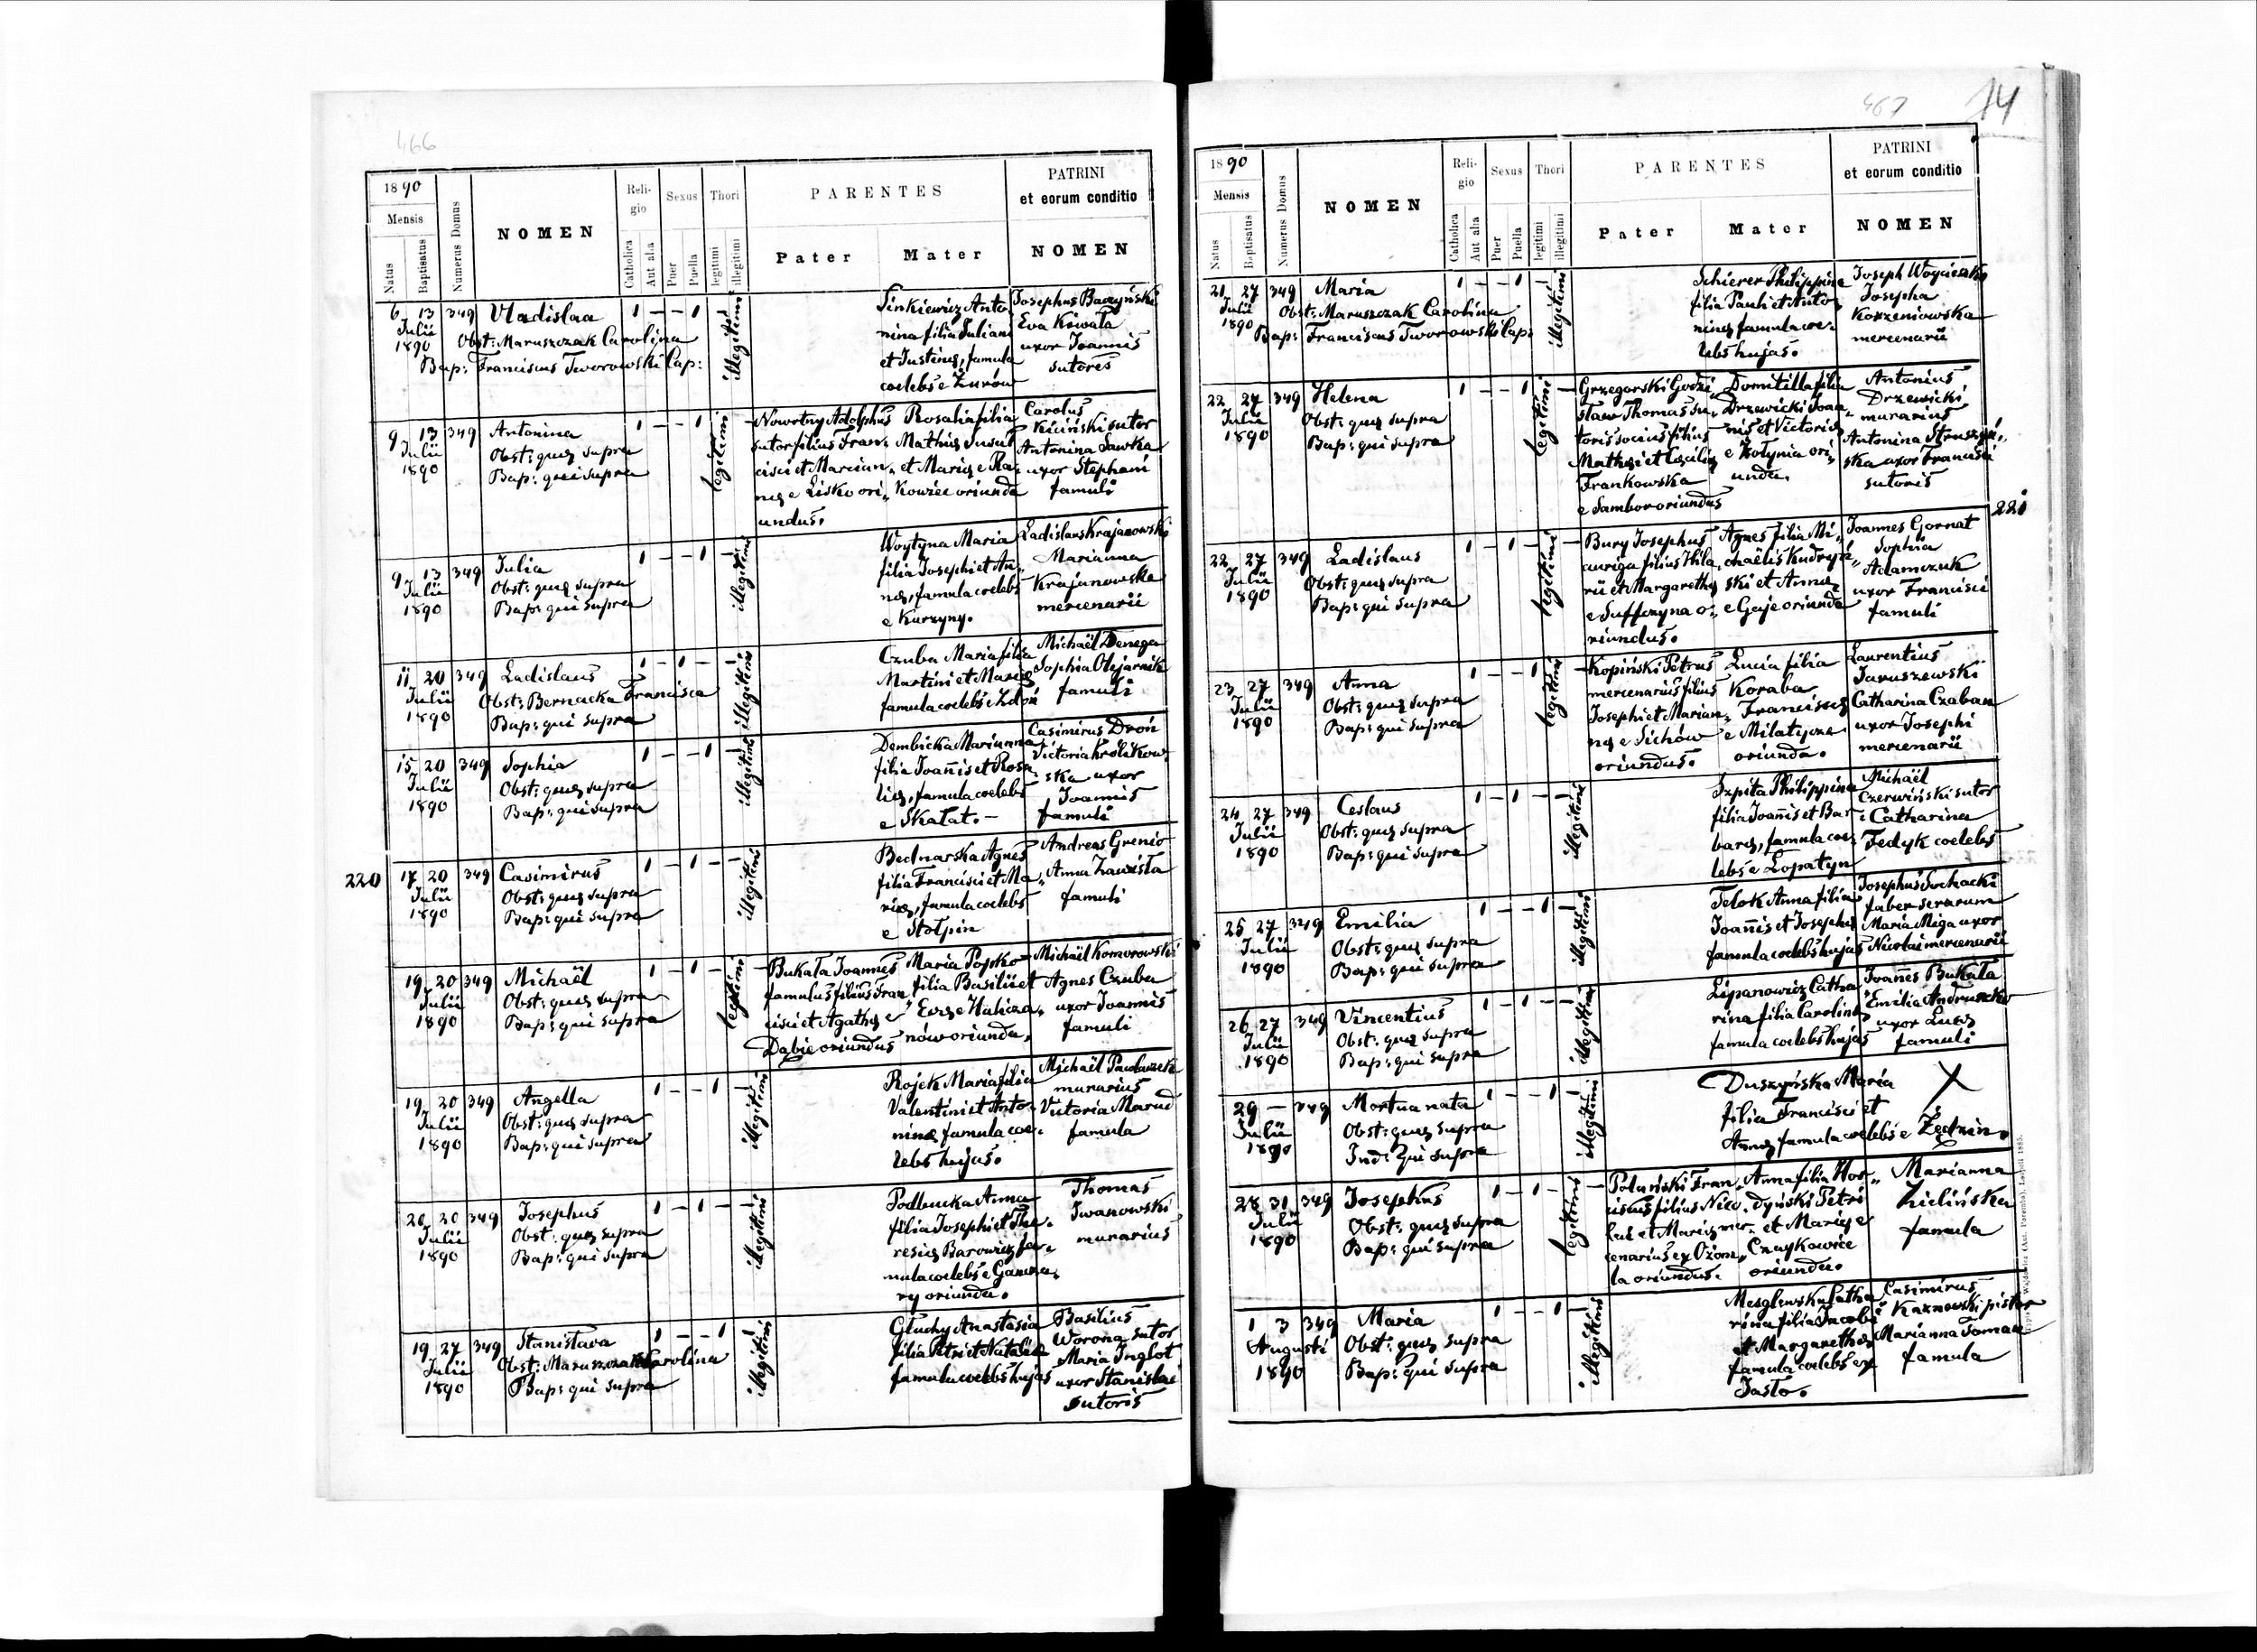 466
1890
Mensis
Natus
Baptisatus
Numerus Domus
NOMEN
Religio
Catholica
Aut alia
Sexus
Puer
Puella
Thori
legitimi
illegitimi
PARENTES
Pater
Mater
PATRINI
et eorum conditio
NOMEN
6 13 349 Vladislaa 1 — — 1 —
Julii
1890
Obst: Maruszczak Carolina
Bap: Franciscus Tworowski Cap:
illegitimi
Sinkiewicz Anto
nina filia Juliani
et Justinę, famula
coelebs e Żurów
Josephus Baczyński
Eva Kowała
uxor Joannis
sutores
9 13 349 Antonina 1 — — 1 —
Julii
1890
Obst: quę supra
Bap: qui supra
legitimi
Nowotny Adolphus
sutor filius Fran„
cisci et Marcian„
nę e Lisko ori„
undus.
Rosalia filia
Mathię
et Marię Ra„
Kowiec oriunda
Carolus
Kiciński sutor
Antonina Sawka
uxor Stephani
famuli
9 13 349 Julia 1 — — 1 —
Julii
1890
Obst: quę supra
Bap: qui supra
illegitimi
Woytyna Maria
filia Josephi et An„
nę, famula coelebs
e Kurzyny.
Ladislaus Krajanowski
Marianna
Krajanowska
mercenarii
11 20 349 Ladislaus 1 — 1 — —
Julii
1890
Obst: Bernacka Francisca
Bap: qui supra
illegitimi
Czuba Maria filia
Martini et Marię
famula coelebs
Michaël Denega
Sophia Olejarnik
famuli
15 20 349 Sophia 1 — — 1 —
Julii
1890
Obst: quę supra
Bap: qui supra
illegitimi
Dembicka Marianna
filia Joannis et Rosa
lię, famula coelebs
e Skałat. —
Casimirus Droń
Victoria Królikow„
ska uxor
Joannis
famuli
220
17 20 349 Casimirus 1 — 1 — —
Julii
1890
Obst: quę supra
Bap: qui supra
illegitimi
Bednarska Agnes
filia Francisci et Ma„
rię, famula coelebs
e Stołpin
Andreas Grenio
Anna Zawisła
famuli
19 20 349 Michaël 1 — 1 — —
Julii
1890
Obst: quę supra
Bap: qui supra
legitimi
Bukała Joannes
famulus filius Fran„
cisci et Agathę e
Dąbie oriundus
Maria Popko
filia Basilii et
Evę e Halicza„
nów oriunda.
Michaël Komorowski
Agnes Czuba
uxor Joannis
famuli
19 20 349 Angella 1 — — 1 —
Julii
1890
Obst: quę supra
Bap: qui supra
illegitimi
Rojek Maria filia
Valentini et Anto„
ninę famula coe„
lebs hujas.
Michaël Pawluszek
murarius
Victoria Marud
famula
20 20 349 Josephus 1 — 1 — —
Julii
1890
Obst: quę supra
Bap: qui supra
illegitimi
Podlucka Anna
filia Josephi et The„
resię Barowicz fa„
mula coelebs e
ry oriunda.
Thomas
Iwanowski
murarius
19 27 349 Stanisłava 1 — — 1 —
Julii
1890
Obst: Maruszczak Carolina
Bap: qui supra
illegitimi
Głuchy Anastasia
filia Petri et Natalię
famula coelebs hujas
Basilius
Worona sutor
Maria Inglot
uxor Stanislai
sutoris
467
14
1890
Mensis
Natus
Baptisatus
Numerus Domus
NOMEN
Religio
Catholica
Aut alia
Sexus
Puer
Puella
Thori
legitimi
illegitimi
PARENTES
Pater
Mater
PATRINI
et eorum conditio
NOMEN
21 27 349 Maria 1 — — 1 —
Julii
1890
Obst: Maruszczak Carolina
Bap: Franciscus Tworowski Cap:
illegitimi
Schierer Philippina
filia Pauli et Anto„
ninę famula coe„
lebs hujas.
Joseph
Josepha
Korzeniowska
mercenarii
22 27 349 Helena 1 — — 1 —
Julii
1890
Obst: quę supra
Bap: qui supra
legitimi
Grzegorski Godzi„
sław Thomas su„
toris socius filius
Mathęi et Cęcilię
Frankowska
e Sambor oriundus
Domitilla filia
Drzewicki Joan„
nis et Victorię
e Żołynia ori„
unda.
Antonius
Drzewicki
murarius
Antonina
ska uxor Francisci
sutoris
221
22 27 349 Ladislaus 1 — 1 — —
Julii
1890
Obst: quę supra
Bap: qui supra
legitimi
Bury Josephus
auriga filius Hila„
rii et Margarethę
e Suffczyna o„
riundus.
Agnes filia Mi„
chaëlis Kudryń„
ski et Annę
e Gaje oriunda
Joannes Gornat
Sophia
Adamczuk
uxor Francisci
famuli
23 27 349 Anna 1 — — 1 —
Julii
1890
Obst: quę supra
Bap: qui supra
legitimi
Kopiński Petrus
mercenarius filius
Josephi et Marian„
nę e Sichów
oriundus.
Lucia filia
Koraba
Franciscę
e Milatycze
oriunda.
Laurentius
Jaruszewski
Catharina Czaban
uxor Josephi
mercenarii
24 27 349 Ceslaus 1 — 1 — —
Julii
1890
Obst: quę supra
Bap: qui supra
illegitimi
Szpita Philippina
filia Joannis et Bar
barę, famula coe„
lebs e Łopatyn
Michaël
Czerwiński sutor
i Catharina
Fedyk coelebs
25 27 349 Emilia 1 — — 1 —
Julii
1890
Obst: quę supra
Bap: qui supra
illegitimi
Telok Anna filia
Joannis et Josephę
famula coelebs hujas
Josephus Suchacki
faber serarum
Maria Miga uxor
Nicolai mercenarii
26 27 349 Vincentius 1 — 1 — —
Julii
1890
Obst: quę supra
Bap: qui supra
illegitimi
Lipanowicz Catha
rina filia Carolinę
famula coelebs hujas
Joannes Bukała
Emilia Andruszko
uxor Lucę
famuli
29 — 349 Mortua nata 1 — — 1 —
Julii
1890
Obst: quę supra
Ind: qui supra
illegitimi
Duszyńska Maria
filia Francisci et
Annę famula coelebs e
X
28 31 349 Josephus 1 — 1 — —
Julii
1890
Obst: quę supra
Bap: qui supra
legitimi
Połuński Fran„
ciscus filius Nico„
lai et Marię mer„
cenarius ex Ożom„
la oriundus.
Anna filia Hor„
dyński Petri
et Marię e
Czaykowice
oriunda.
Marianna
Zielińska
famula
1 3 349 Maria 1 — — 1 —
Augusti
1890
Obst: quę supra
Bap: qui supra
illegitimi
Catha
rina filia Jacobi
et Margarethę
famula coelebs ex
Jasło.
Casimirus
Kaznowski pistor
Marianna Toman
famula